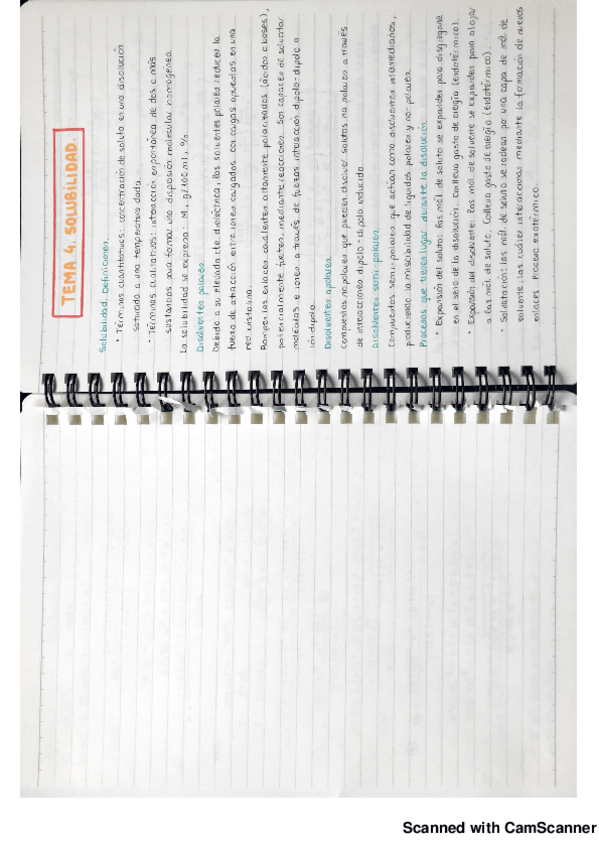 TEMA 4. SOLUBILIDAD.
Solubilidad. Definiciones.
• Términos cuantitativos: concentración de soluto en una disolución
saturada a una temperatura dada.
• Términos cualitativos: interacción espontánea de dos o más
sustancias para formar una disposición molecular homogénea.
La solubilidad se expresa: M, g/100 ml, %
Disolventes polares.
Debido a su elevada cte dieléctrica, los solventes polares reducen la
fuerza de atracción entre iones cargados con cargas opuestas en una
red cristalina.
Rompen los enlaces covalentes altamente polarizados (ácidos o bases),
potencialmente fuertes, mediante reacciones. Son capaces de solvatar
moléculas e iones a través de fuerzas interacción dipolo-dipolo o
ión dipolo.
Disolventes apolares.
Compuestos no polares que pueden disolver solutos no polares a través
de interacciones dipolo-dipolo inducido
Disolventes semi-polares.
Compuestos semi-polares que actúan como disolventes intermediarios,
produciendo la miscibilidad de líquidos polares y no-polares.
Procesos que tienen lugar durante la disolución.
• Expansión del soluto: las mol. de soluto se expanden para disgregarse
en el seno de la disolución. Conlleva gasto de energía (endotérmico).
• Expansión del disolvente: las mol. de solvente se expanden para alojar
a las mol de soluto. Conlleva gasto de energía (endotérmico).
• Solvatación: las mol. de soluto se rodean por una capa de mol. de
solvente, las cuales interaccionan mediante la formación de nuevos
enlaces. Proceso exotérmico.
Scanned with CamScanner